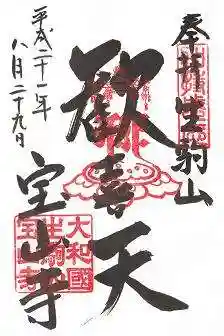 奉拝 生駒山
歓喜天
宝山寺
平成二十一年
八月二十九日
大和國
生駒山
宝山寺